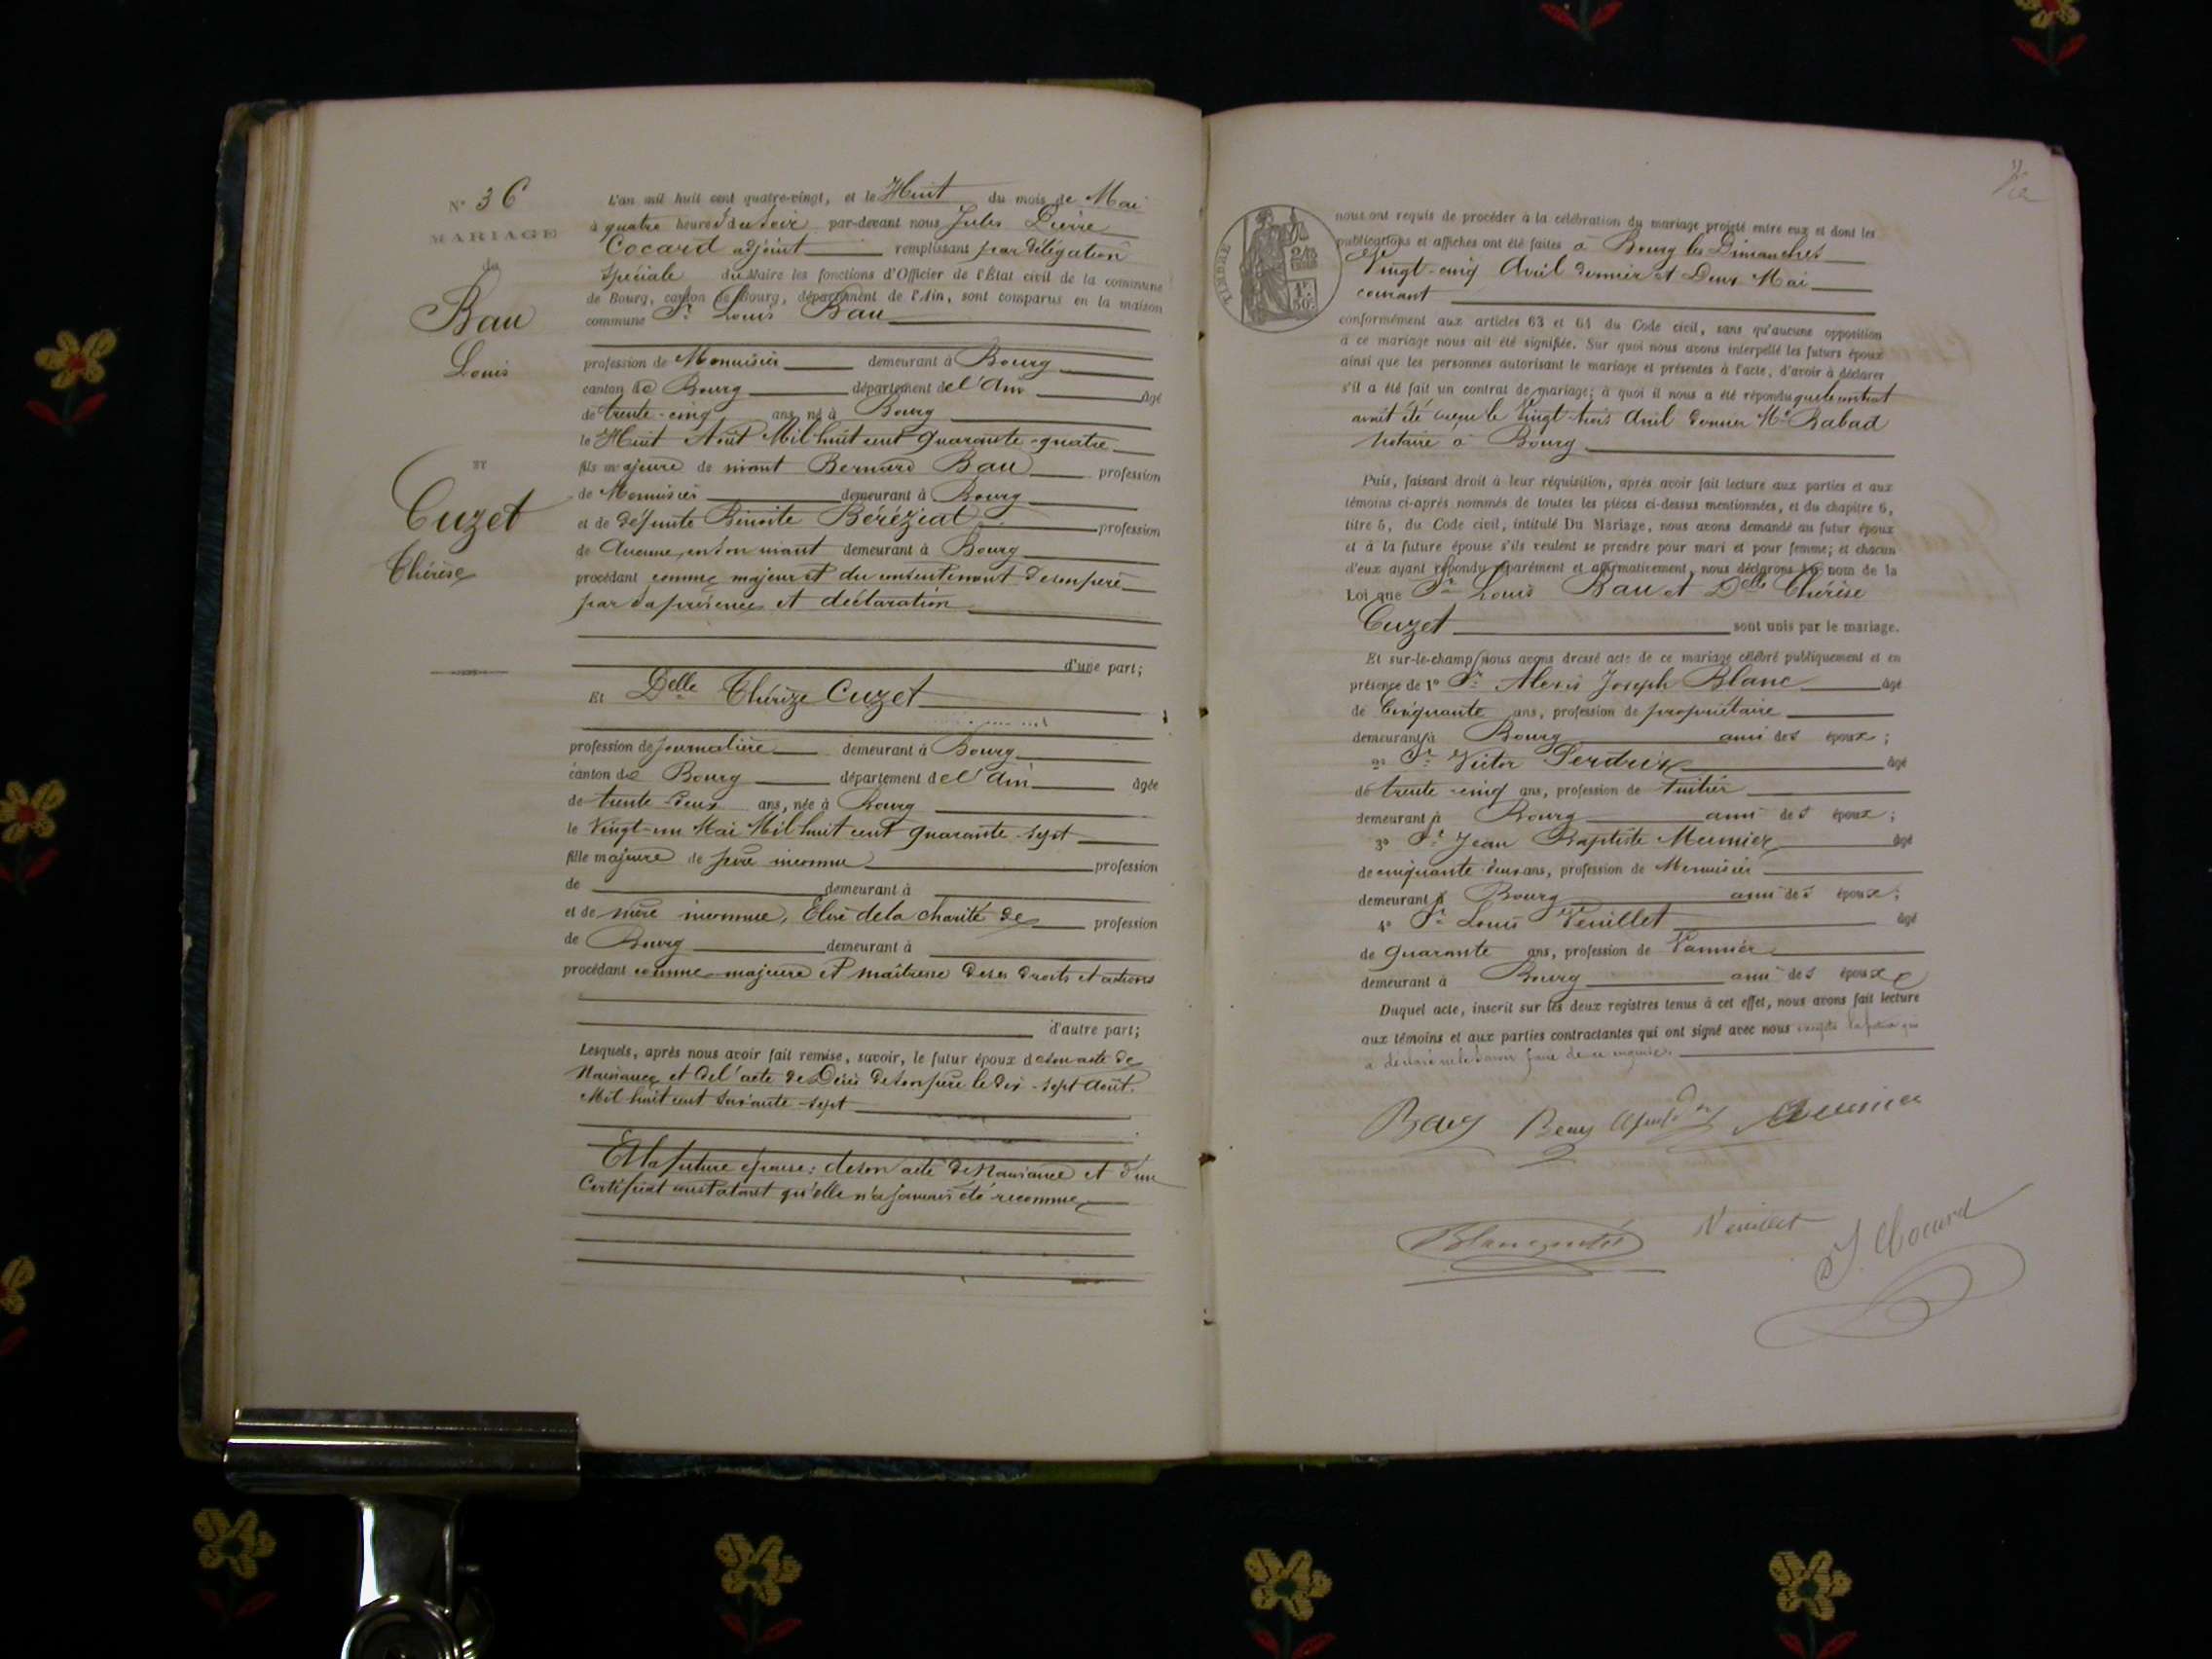 N° 36
MARIAGE
de
Bau
Louis
ET
Cuzet
Thérèse
L'an mil huit cent quatre-vingt, et le Huit du mois de Mai
à quatre heures du soir par-devant nous Jules Pierre
Cocard adjoint remplissant par délégation
spéciale du Maire les fonctions d'Officier de l'État civil de la commune
de Bourg, canton de Bourg, département de l'Ain, sont comparus en la maison
commune Sr Louis Bau
profession de Menuisier demeurant à Bourg
canton de Bourg département de l'Ain âgé
de trente-cinq ans, né à Bourg
le Huit Août Mil huit cent quarante-quatre
fils majeur de vivant Bernard Bau profession
de Menuisier demeurant à Bourg
et de défunte Benoite Béréziat profession
de Aucune, en son vivant demeurant à Bourg
procédant comme majeur et du consentement de son père
par sa présence et déclaration
d'une part;
Et Delle Thérèze Cuzet
profession de journalière demeurant à Bourg
canton de Bourg département de l'Ain âgée
de trente deux ans, née à Bourg
le Vingt-un Mai Mil huit cent quarante-sept
fille majeure de père inconnu profession
de demeurant à
et de mère inconnue, Élève de la charité de profession
de Bourg demeurant à
procédant comme majeure et maîtresse de ses droits et actions
d'autre part;
Lesquels, après nous avoir fait remise, savoir, le futur époux de son acte de
Naissance et de l'acte de Décès de son père le dix-sept Août
Mil huit cent soixante-sept
Et la future épouse: de son acte de Naissance et d'un
Certificat constatant qu'elle n'a jamais été reconnue
TIMBRE
nous ont requis de procéder à la célébration du mariage projeté entre eux et dont les
publications et affiches ont été faites à Bourg les Dimanches
Vingt-cinq Avril dernier et Deux Mai
courant
conformément aux articles 63 et 64 du Code civil, sans qu'aucune opposition
à ce mariage nous ait été signifiée. Sur quoi nous avons interpellé les futurs époux
ainsi que les personnes autorisant le mariage et présentes à l'acte, d'avoir à déclarer
s'il a été fait un contrat de mariage; à quoi il nous a été répondu que le contrat
avait été reçu le Vingt-trois Avril dernier Me Rabad
Notaire à Bourg
Puis, faisant droit à leur réquisition, après avoir fait lecture aux parties et aux
témoins ci-après nommés de toutes les pièces ci-dessus mentionnées, et du chapitre 6,
titre 5, du Code civil, intitulé Du Mariage, nous avons demandé au futur époux
et à la future épouse s'ils veulent se prendre pour mari et pour femme; et chacun
d'eux ayant répondu séparément et affirmativement, nous déclarons au nom de la
Loi que Sr Louis Bau et Delle Thérèse
Cuzet sont unis par le mariage.
Et sur-le-champ nous avons dressé acte de ce mariage célébré publiquement et en
présence de 1° Sr Alexis Joseph Blanc âgé
de Cinquante ans, profession de propriétaire
demeurant à Bourg ami des époux;
2° Sr Victor Perdrix âgé
de trente-cinq ans, profession de
demeurant à Bourg ami des époux;
3° Sr Jean Baptiste Meunier âgé
de cinquante deux ans, profession de Menuisier
demeurant à Bourg ami des époux;
4° Sr Louis Veuillet âgé
de quarante ans, profession de Vannier
demeurant à Bourg ami des époux
Duquel acte, inscrit sur les deux registres tenus à cet effet, nous avons fait lecture
aux témoins et aux parties contractantes qui ont signé avec nous excepté la future qui
a déclaré ne le savoir faire de ce enquise.
Bau Meunier
Veuillet
J. Cocard